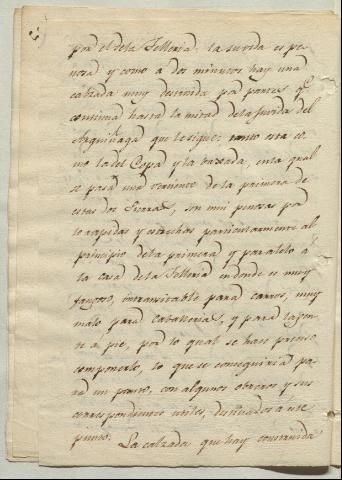 por el de la Telleria: la suvida es pe-
nosa, y como a dos minutos hay una
calzada muy destruida por partes q.e
continua hasta la mitad de la suvida del
que le sigue: tanto esta co-
mo la del y la baxada, en la qual
se pasa una de la primera de
estas dos Sierras, son mui penosas p.r
lo rapidas y estrechas particularmente al
principio de la primera y paralelo á
la casa de la Telleria en donde es muy
fangoso, intransitable para carros, muy
malo para Caballerias, y para la jen-
te á pie, por lo qual se hace preciso
componerlo, lo que se conseguiria pa-
ra un pronto, con algunos obreros y sus
correspondientes utiles, destinados á este
punto. La calzada que hay construida